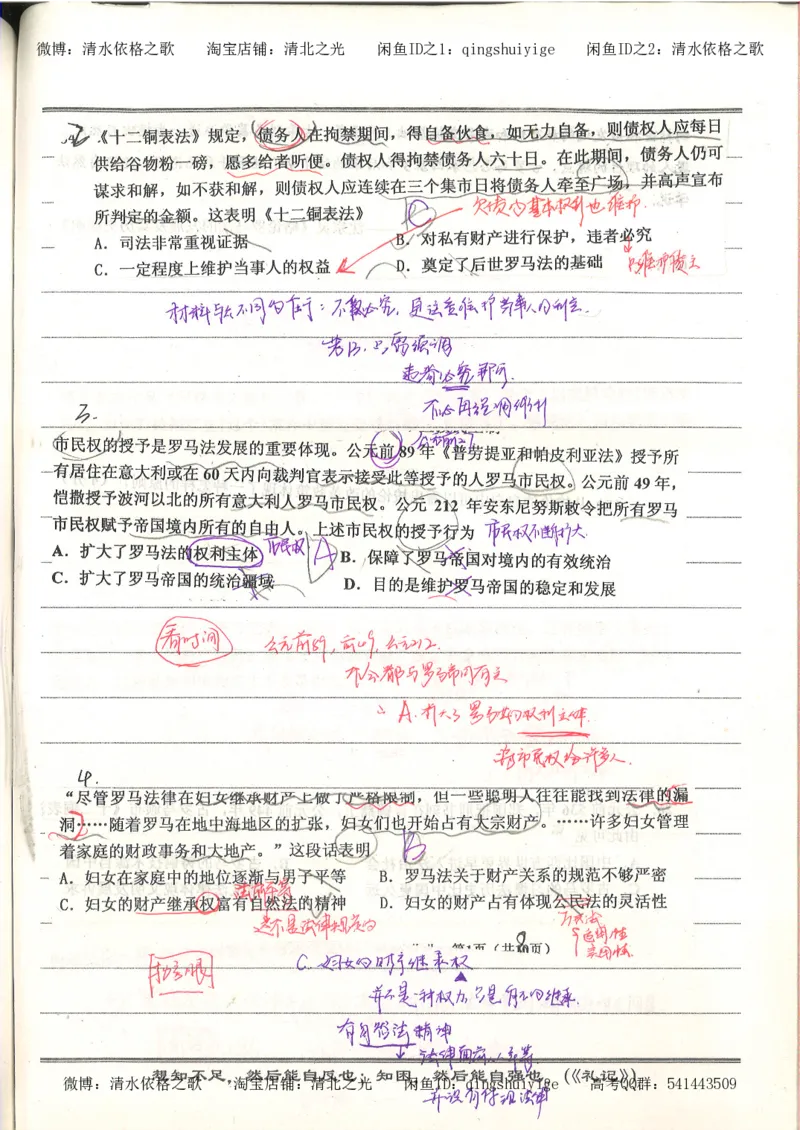 微博：清水依格之歌 淘宝店铺：清北之光 闲鱼ID之1：qingshuiyige 闲鱼ID之2：清水依格之歌
2 《十二铜表法》规定，债务人在拘禁期间，得自备伙食，如无力自备，则债权人应每日
供给谷物粉一磅，愿多给者听便。债权人得拘禁债务人六十日。在此期间，债务人仍可
谋求和解，如不获和解，则债权人应连续在三个集市日将债务人牵至广场，并高声宣布
所判定的金额。这表明《十二铜表法》 C 欠债的基本权利也维护.
A．司法非常重视证据 B．对私有财产进行保护，违者必究
C．一定程度上维护当事人的权益 D．奠定了后世罗马法的基础
材料与
违者必究
三.
市民权的授予是罗马法发展的重要体现。公元前 89 年《普劳提亚和帕皮利亚法》授予所
有居住在意大利或在 60 天内向裁判官表示接受此等授予的人罗马市民权。公元前 49 年，
恺撒授予波河以北的所有意大利人罗马市民权。公元 212 年安东尼努斯敕令把所有罗马
市民权赋予帝国境内所有的自由人。上述市民权的授予行为 市民权不断扩大
A．扩大了罗马法的权利主体 市民权 A B．保障了罗马帝国对境内的有效统治
C．扩大了罗马帝国的统治疆域 D．目的是维护罗马帝国的稳定和发展
看时间 公元前89，前49，公元212.
∴ A.扩大了罗马法的权利主体.
4.
“尽管罗马法律在妇女继承财产上做了严格限制，但一些聪明人往往能找到法律的漏
洞……随着罗马在地中海地区的扩张，妇女们也开始占有大宗财产。……许多妇女管理
着家庭的财政事务和大地产。”这段话表明 B
A．妇女在家庭中的地位逐渐与男子平等 B．罗马法关于财产关系的规范不够严密
C．妇女的财产继承权富有自然法的精神 D．妇女的财产占有体现公民法的灵活性
这不是法律规定的 万民法
适用性
实用性
第1页（共8页）
C. 妇女的财产继承权
有自然法精神
法律面前人人平等
想知不足，然后能自反也；知困，然后能自强也。(《礼记》)
微博：清水依格之歌 淘宝店铺：清北之光 闲鱼ID：qingshuiyige 高考QQ群：541443509